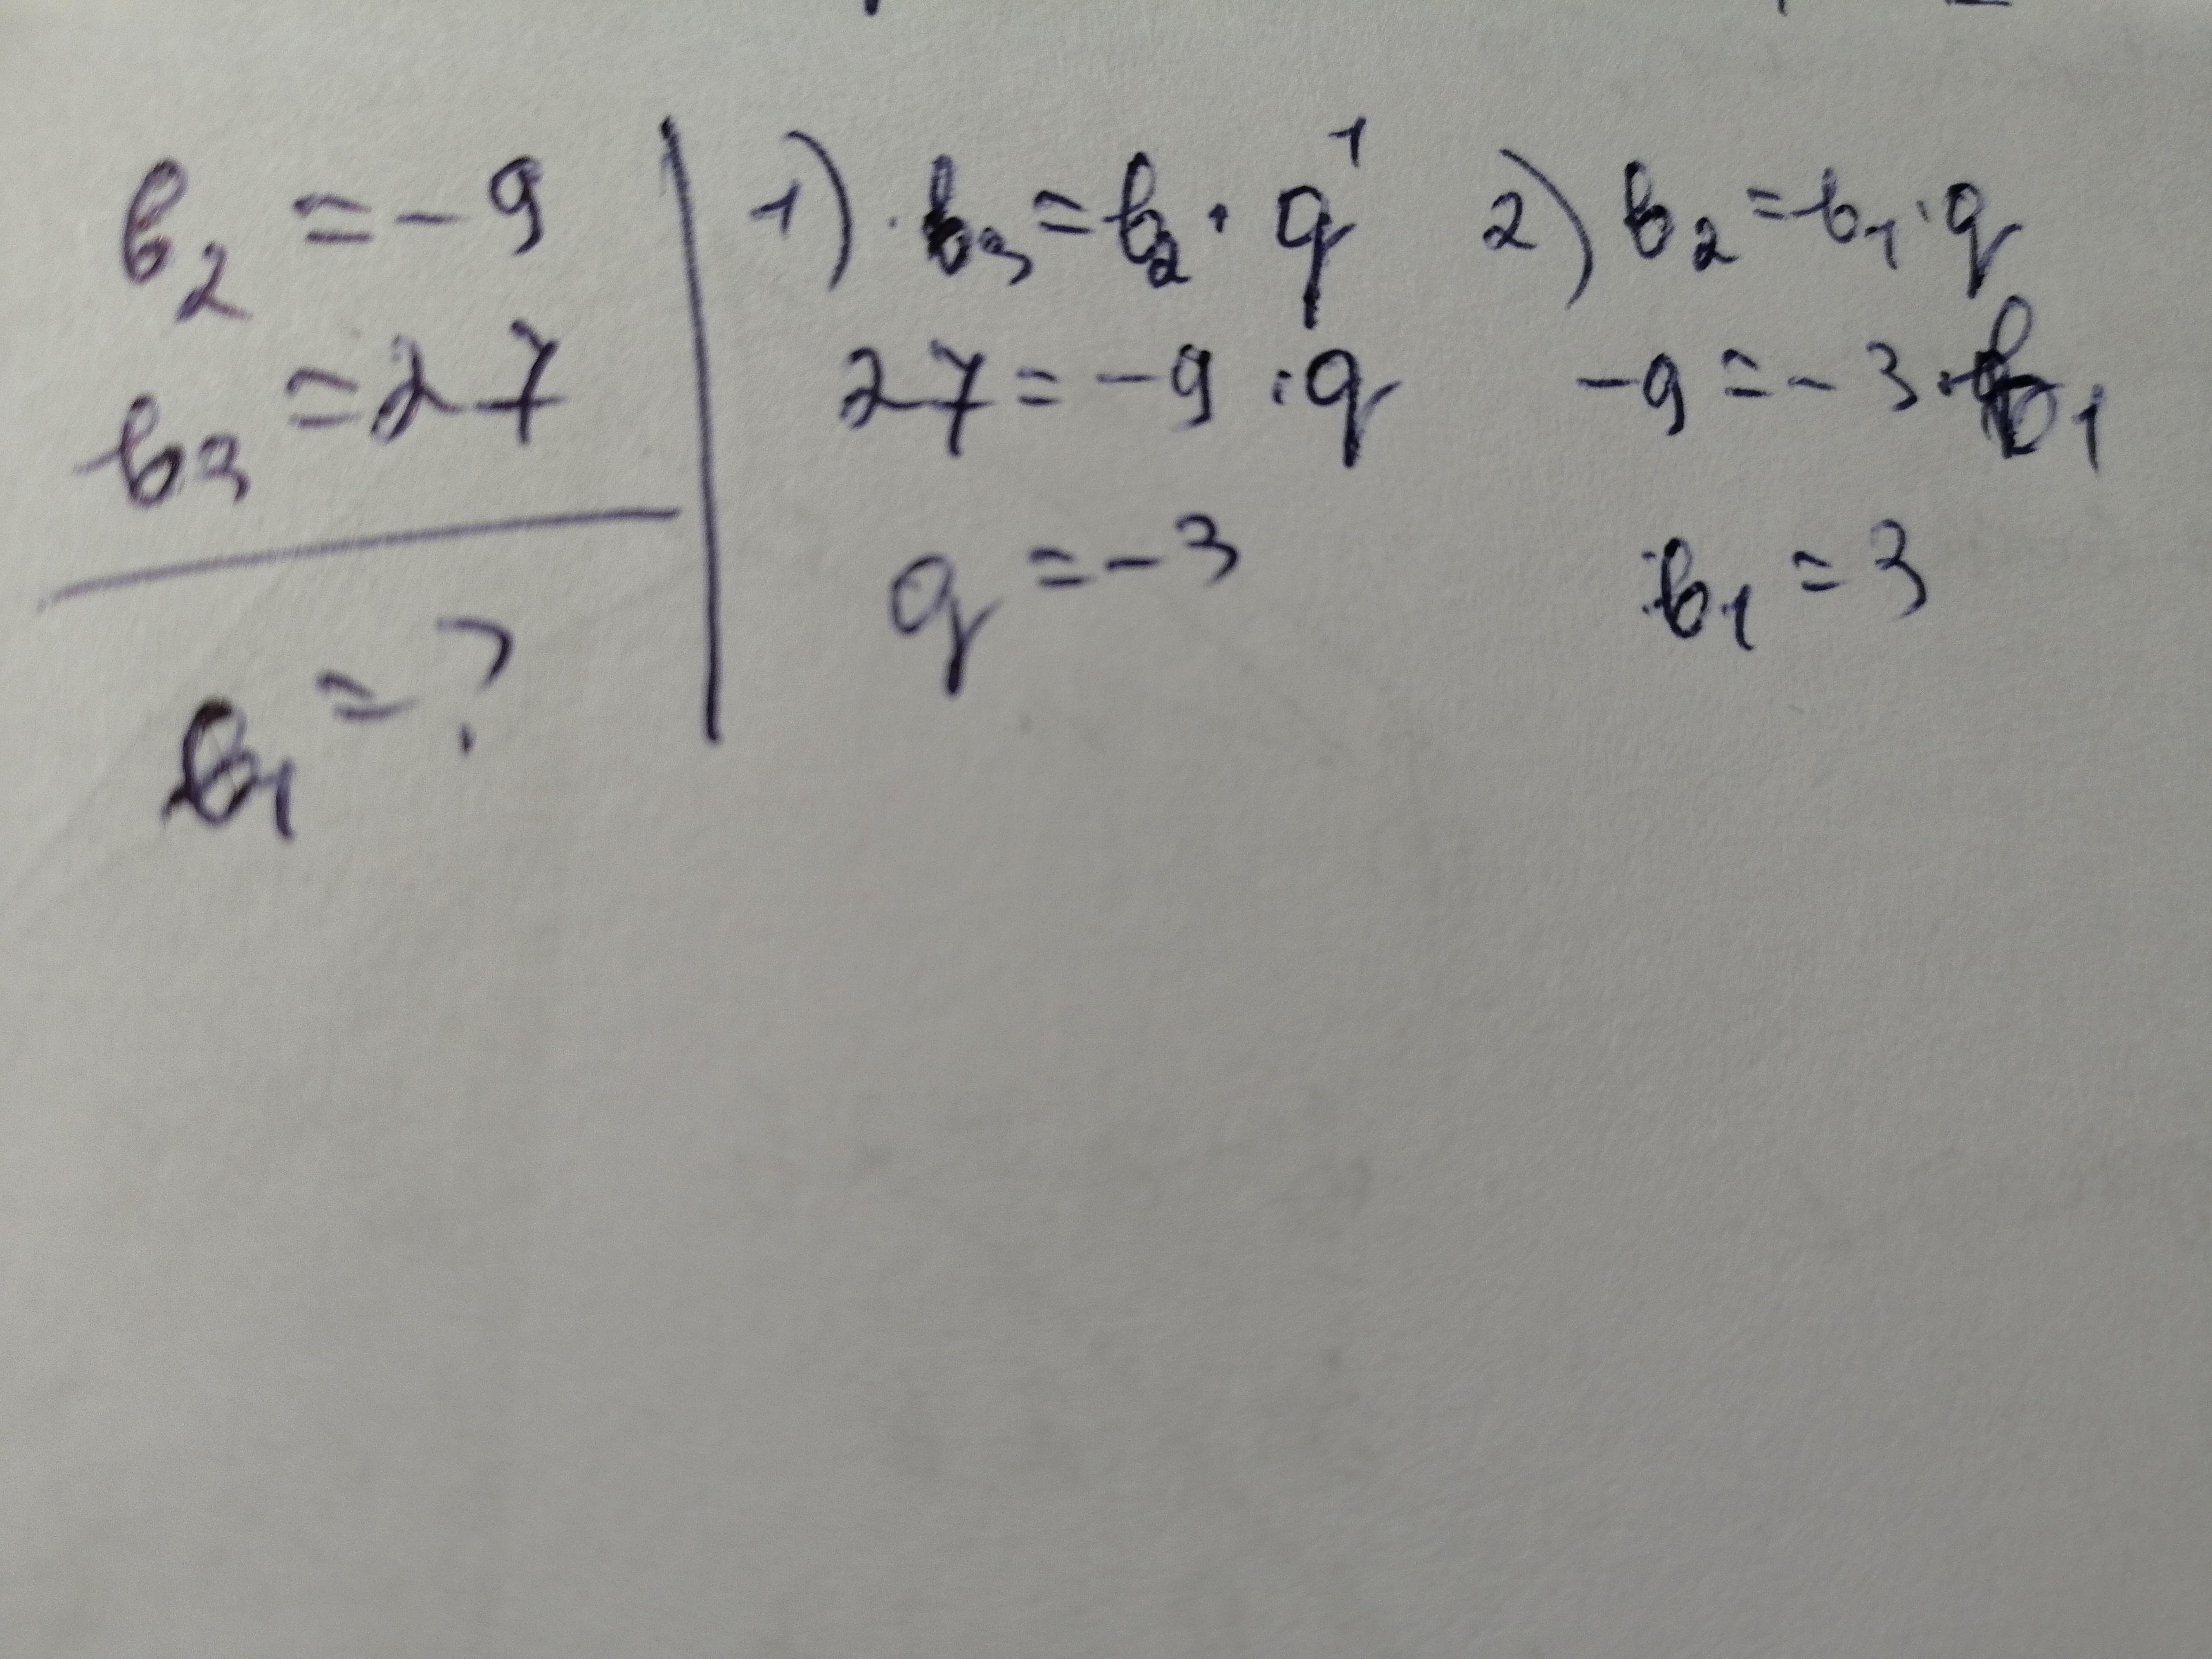 b₂ = -9
b₃ = 27
b₁ = ?
1) b₃ = b₂ · q¹
27 = -9 · q
q = -3
2) b₂ = b₁ · q
-9 = -3 · b₁
b₁ = 3